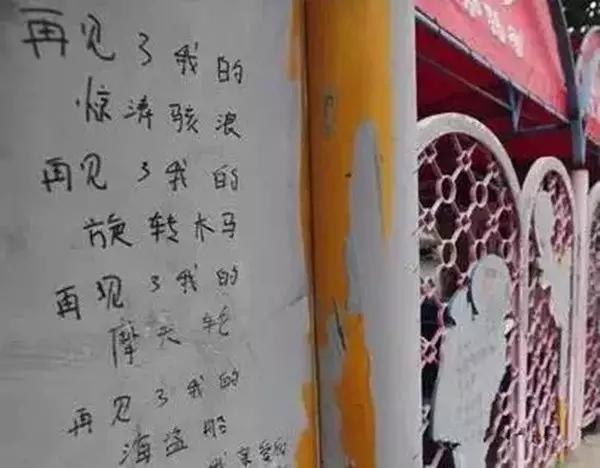 再见了我的
惊涛骇浪
再见了我的
旋转木马
再现了我的
摩天轮
再见了我的
海盗船
我亲爱的